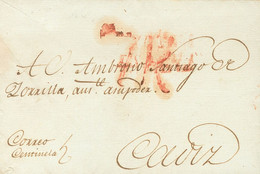 A D. Ambrosio Santiago de
Zorrilla, aus.te ampoder.
Correo
Centinela
Cadiz